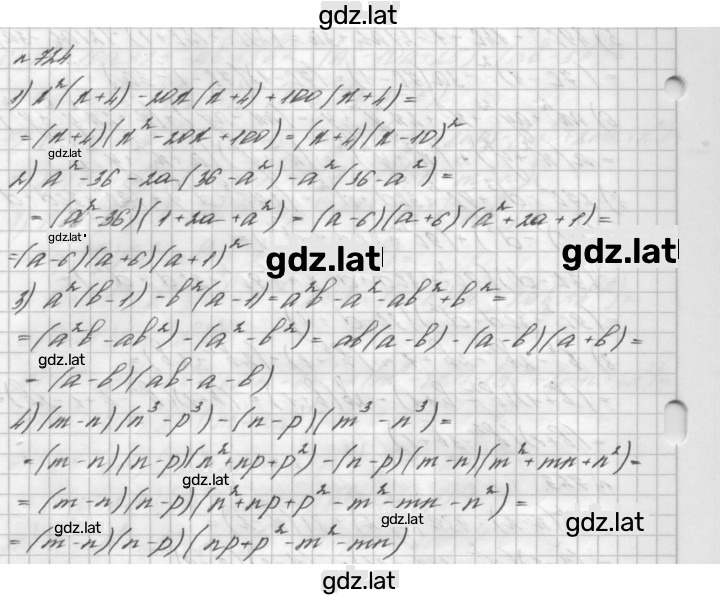 gdz.lat
n 724
1) x²(x+4) - 20x(x+4) + 100(x+4) =
= (x+4)(x² - 20x + 100) = (x+4)(x-10)²
gdz.lat
2) a² - 36 - 2a(36 - a²) - a²(36 - a²) =
= (a² - 36)(1 + 2a + a²) = (a-6)(a+6)(a² + 2a + 1) =
gdz.lat
= (a-6)(a+6)(a+1)²
gdz.lat
gdz.lat
3) a²(b-1) - b²(a-1) = a²b - a² - ab² + b² =
= (a²b - ab²) - (a² - b²) = ab(a-b) - (a-b)(a+b) =
gdz.lat
- (a-b)(ab-a-b)
4) (m-n)(n³-p³) - (n-p)(m³-n³) =
= (m-n)(n-p)(n²+np+p²) - (n-p)(m-n)(m²+mn+n²) =
gdz.lat
= (m-n)(n-p)(n²+np+p² - m² - mn - n²) =
gdz.lat
gdz.lat
gdz.lat
= (m-n)(n-p)(np+p²-m²-mn)
gdz.lat